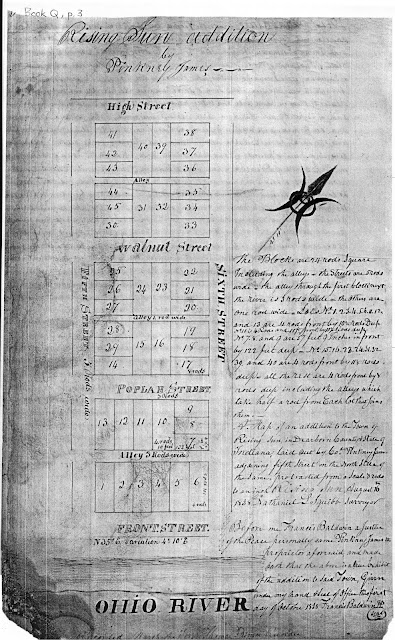 Book Q, p. 3
Rising Sun addition
by
Pinkney James
High Street
41 40 39 38
42 37
43 36
Alley
44 31 32 35
45 34
30 33
Walnut Street
25 24 23 22
26 21
27 20
Alley 1 rod wide
28 15 16 19
29 18
14 17
FIFTH STREET 3 Rods wide
SIXTH STREET
POPLAR STREET
3 Rods
13 12 11 10 9
8
7
Alley 3 Rods wide
1 2 3 4 5 6
FRONT STREET.
N 35° E variation 4° 10' E
OHIO RIVER
The Blocks are 24 rods Square
Including the alleys – the Streets are 3 rods
wide – the alley through the first block next
the river is 3 rods wide – the others are
one rod wide – Lots No. 1. 2. 3. 4. 5. 6. 12.
and 13 are 4 rods front by 10 Rods Deep
No 7, 8 and 9 are 57 feet 9 Inches front
by 122 feet deep – No 15. 16. 23. 24. 31. 32.
39. and 40 are 4 rods front by
deep & all the rest are 4 rods front by 8
rods deep including the alleys which
take half a rod from Each lot this joins
them –
A Map of an addition to the Town of
Rising Sun in Dearborn County & State of
Indiana, laid out by Col. Pinkney James
adjoining fifth Street on the North Side of
the Same, protracted from a Scale of rods
to an inch Rising Sun, August 16
Nathaniel Squibb Surveyor
Before me Francis Baldwin a Justice
of the Peace personally came Pinkney James
proprietor aforesaid, and made
oath that the above is a true
of the addition to Said Town, Given
under my hand
day of October Francis Baldwin JP